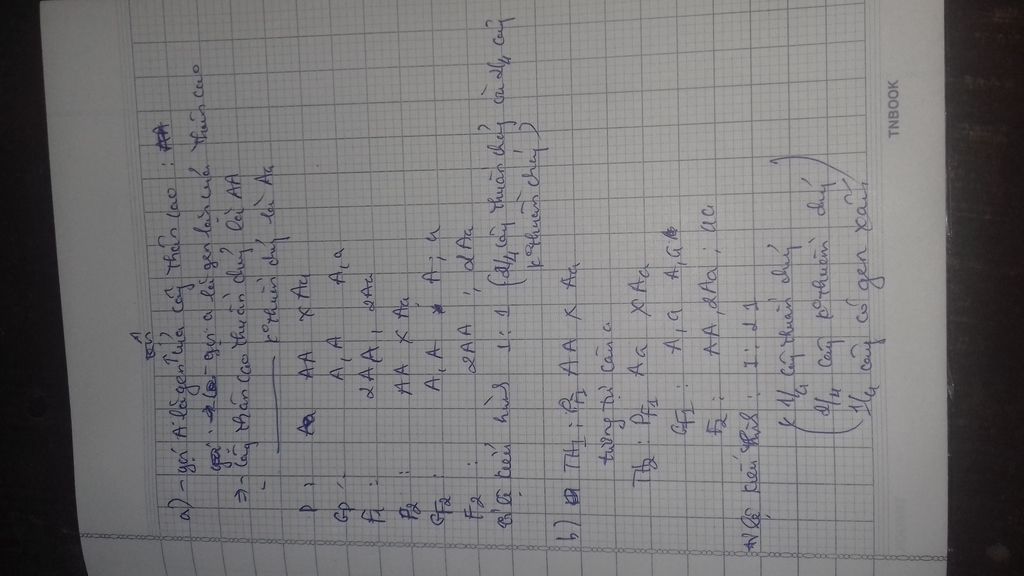 a) - gọi A là gen của cây thân cao : AA
gọi a là gen lặn của thân cao
=> - cây thân cao thuần chủng là AA
- k° thuần chủng là Aa
P : Aa AA x Aa
Gp : A, A A, a
F1 : 2AA, 2Aa
P2 : AA x Aa
GF2 : A, A A ; a
F2 : 2AA , 2Aa
kiểu hình 1 : 1 (2/4 cây thuần chủng còn 2/4 cây
k° thuần chủng)
b) TH1 : PF1 AA x Aa
tương tự câu a
TH2 : PF1 Aa x Aa
GF1 : A, a A, a
F2 : AA, 2Aa ; aa
kiểu hình : 1 : 2 1
( 1/4 cây thuần chủng )
( 2/4 cây k° thuần chủng )
1/4 cây có gen
TNBOOK